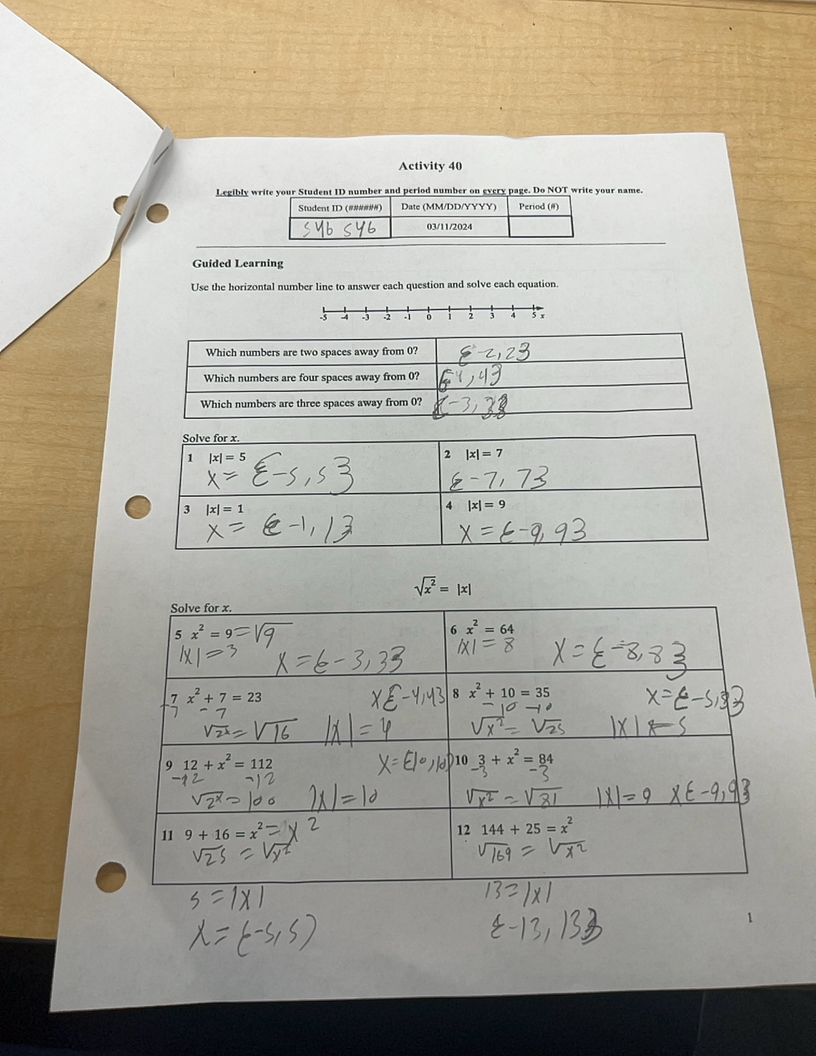 Activity 40
Legibly write your Student ID number and period number on every page. Do NOT write your name.
Student ID (######) Date (MM/DD/YYYY) Period (#)
546 546 03/11/2024
Guided Learning
Use the horizontal number line to answer each question and solve each equation.
-5 -4 -3 -2 -1 0 1 2 3 4 5 x
Which numbers are two spaces away from 0? {-2,2}
Which numbers are four spaces away from 0? {-4,4}
Which numbers are three spaces away from 0? {-3,3}
Solve for x.
1 |x| = 5
x = {-5,5}
2 |x| = 7
{-7,7}
3 |x| = 1
x = {-1,1}
4 |x| = 9
x = {-9,9}
√x² = |x|
Solve for x.
5 x² = 9 = √9
|x| = 3 x = {-3,3}
6 x² = 64
|x| = 8 x = {-8,8}
7 x² + 7 = 23 x{-4,4}
-7 -7
√2x = √16 |x| = 4
8 x² + 10 = 35 x = {-5,5}
-10 -10
√x² = √25 |x| = 5
9 12 + x² = 112 x = {10,10}
-12 -12
√2x = 100 |x| = 10
10 3 + x² = 84
-3 -3
√x² = √81 |x| = 9 x{-9,9}
11 9 + 16 = x² = x2
√25 = √x²
5 = |x|
x = {-5,5)
12 144 + 25 = x²
√169 = √x²
13 = |x|
{-13,13}
1